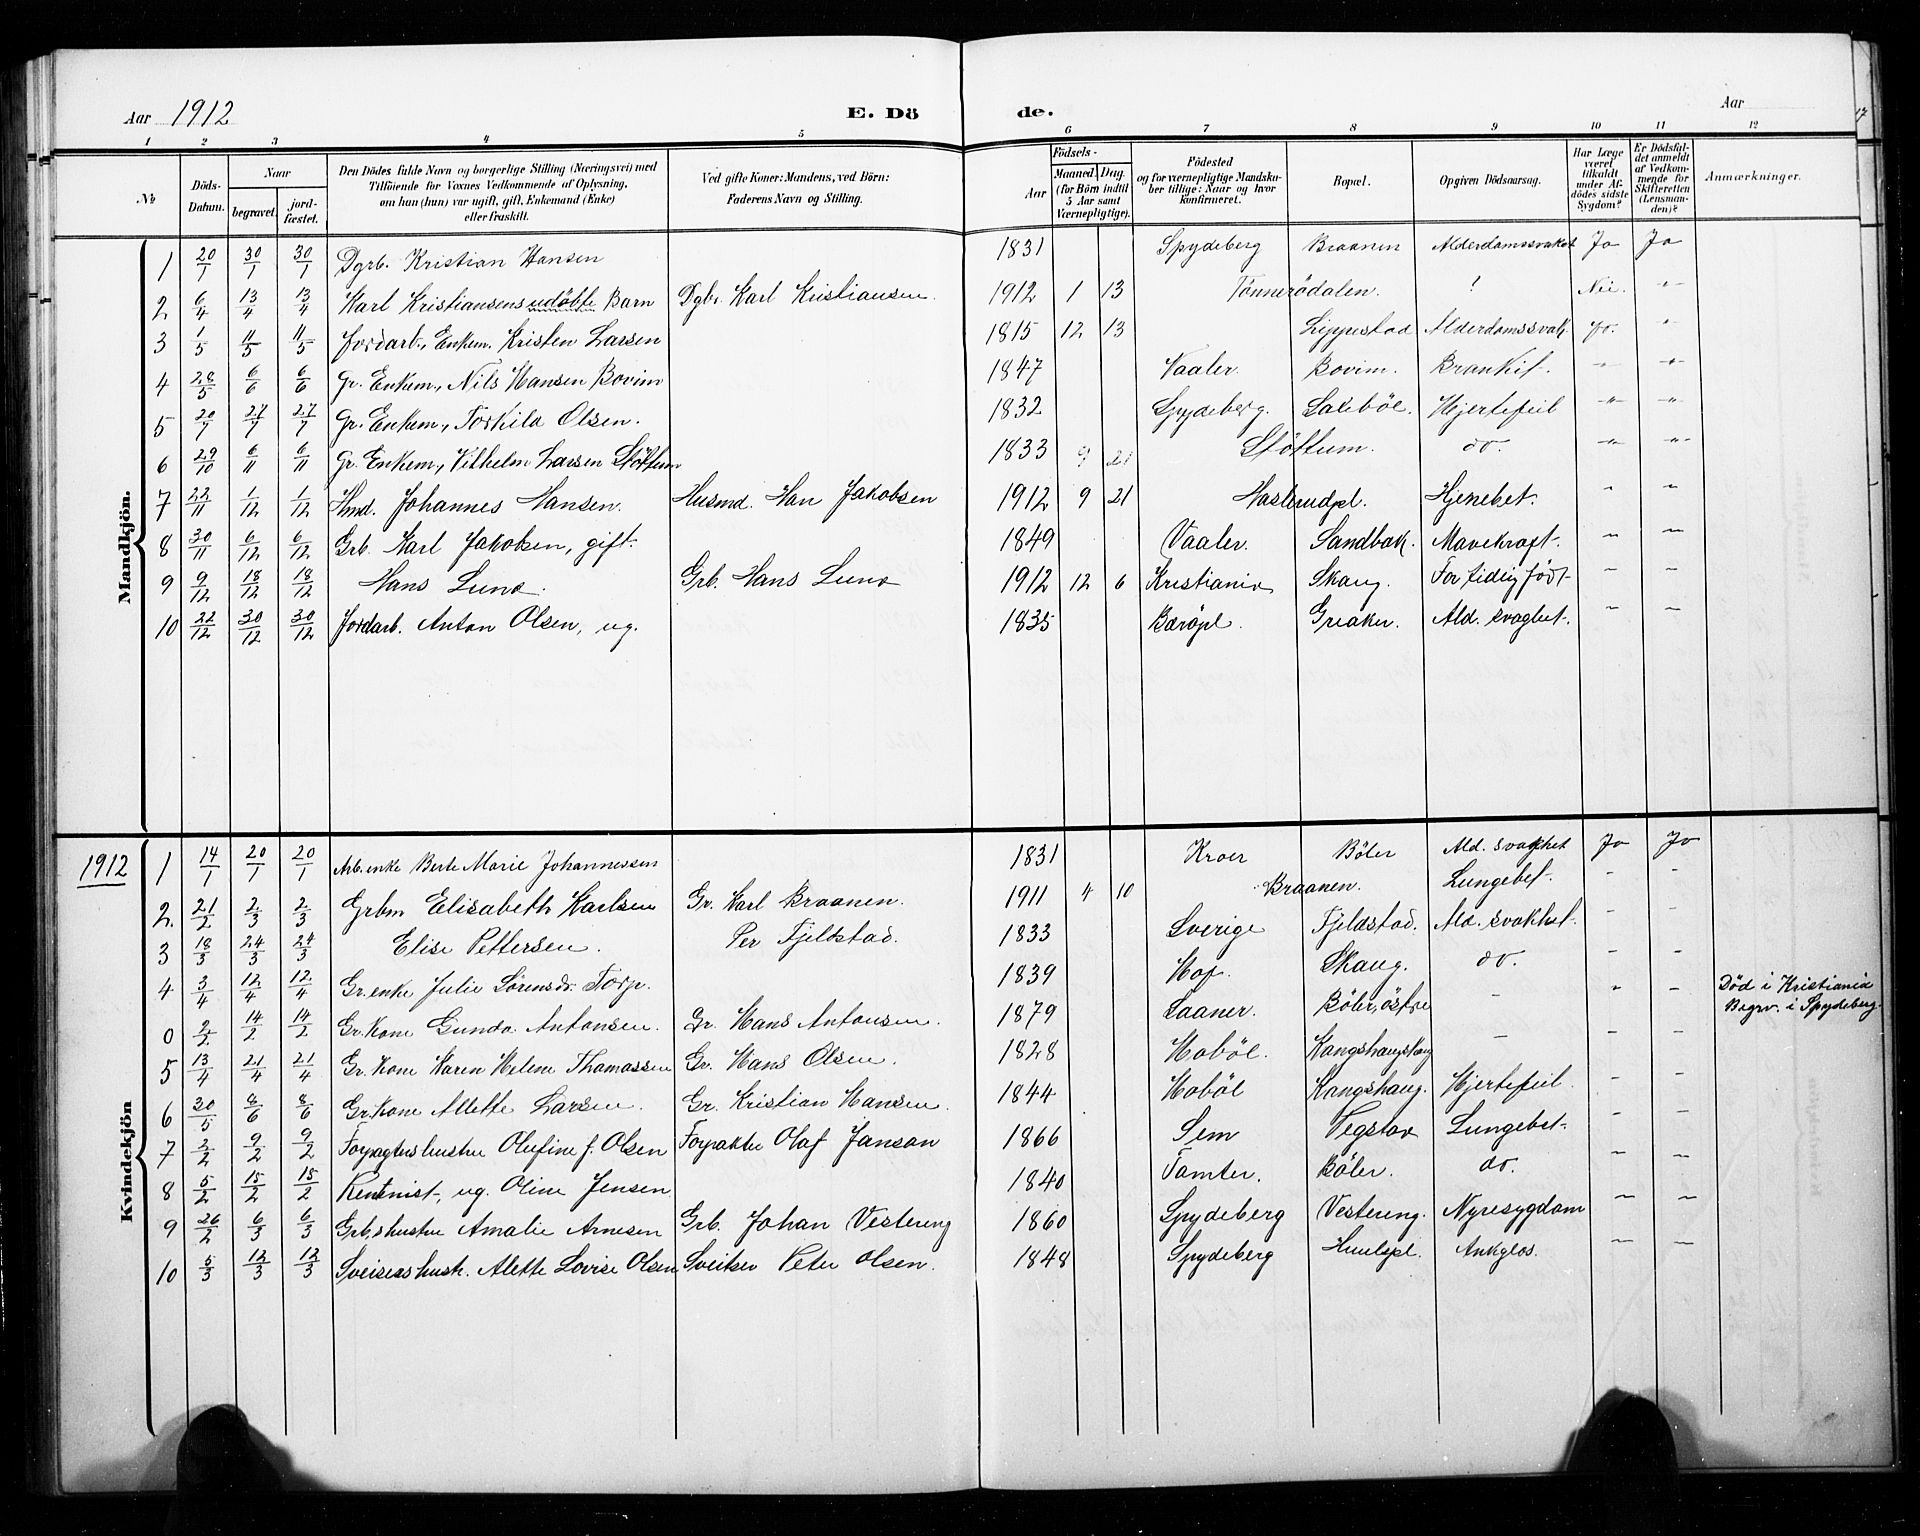 Aar 1912 E. Dö de. Aar 17
1 2 3 4 5 6 7 8 9 10 11 12
No Döds-Datum. Naar begravet. jordfæstet. Den Dödes fulde Navn og borgerlige Stilling (Næringsvei) med Tilföiende for Voxnes Vedkommende af Oplysning, om han (hun) var ugift, gift, Enkemand (Enke) eller fraskilt. Ved gifte Koner: Mandens, ved Börn: Faderens Navn og Stilling. Födsels- Aar Maaned Dag (for Börn indtil 5 Aar samt Værnepligtige). Födested og for værnepligtige Mandskaber tillige: Naar og hvor konfirmeret. Bopæl. Opgiven Dödsaarsag. Har Læge været tilkaldt under Afdödes sidste Sygdom? Er Dödsfaldet anmeldt af Vedkommende for Skifteretten (Lensmanden)? Anmærkninger.
Mandkjön.
1 20/1 30/1 30/1 Dgrb. Kristian Hansen 1831 Spydeberg Braanen Alderdomssvakhet Ja Ja
2 6/4 13/4 13/4 Karl Kristiansens udöbte Barn Dgbr. Karl Kristiansen. 1912 1 13 Tönnerödalen. ! Nei. -"-
3 1/5 11/5 11/5 Jordarb., Enkem. Kristen Larsen 1815 12 13 Lippestad Alderdomssvak. Jo. "
4 28/5 6/6 6/6 Gr. Enkem., Nils Hansen Bovim 1847 Vaaler. Bovim. Bronkit. -"- -"-
5 20/7 27/7 27/7 Gr. Enkem., Torkild Olsen. 1832 Spydeberg. Soleböl. Hjertefeil -"- -"-
6 29/10 6/11 6/11 Gr. Enkem., Vilhelm Larsen Stöttum 1833 9 21 Stöttum. do. -"- -"-
7 22/11 1/12 1/12 Hmd. Johannes Hansen. Husmd. Han Jakobsen 1912 9 21 Haslerudpl. Hjenebet. " "
8 30/11 6/12 6/12 Grb. Karl Jakobsen, gift. 1849 Vaaler. Sandbak. Mavekræft. - -
9 9/12 18/12 18/12 Hans Lund. Grb. Hans Lund 1912 12 6 Kristiania Skaug. For tidlig födt - -
10 22/12 30/12 30/12 Jordarb. Anton Olsen, ug. 1835 Bæröpl. Greaker. Ald. svaghet. - -
Kvindekjön
1912 1 14/1 20/1 20/1 Arb. enke Berte Marie Johannessen 1831 Kroer Böler Ald. svakhet Jo Jo
2. 21/2 2/3 2/3 Grbm Elisabeth Karlsen Gr. Karl Braanen. 1911 4 10 Braanen. Lungebet. - -
3 18/3 24/3 24/3 Elise Pettersen. Per Fjeldstad. 1833 Sverige Fjeldstad. Ald. svakhet. - -
4 3/4 12/4 12/4 Gr. enke Julie Sörensdr. Torp. 1839 Hof. Skaug. do. - -
0 2/2 14/2 14/2 Gr. Kone Gunda Antonsen. Gr. Hans Antonsen. 1879 Saaner. Böler, östre - " - Död i Kristiania
Begrv. i Spydeberg.
5 13/4 21/4 21/4 Gr. Kone Karen Helene Thomassen Gr. Hans Olsen. 1828 Hoböl. Kongshaugskaug - - -
6 30/5 8/6 8/6 Gr. Kone Alette Larsen. Gr. Kristian Hansen. 1844 Hoböl Kongshaug. Hjertefeil. - -
7 2/2 9/2 9/2 Forpagtershustru Olufine f. Olsen Forpakter Olaf Jansan 1866 Sem Vegstad Lungebet. - -
8 5/2 15/2 15/2 Rentenist., ug. Oline Jensen 1840 Tomter. Böler. do. - -
9 26/2 6/3 6/3 Grb.shustru Amalie Arnesen Grb. Johan Vestereng 1860 Spydeberg Vestereng. Nyresygdom - -
10 5/3 12/3 12/3 Sveisershustr. Alette Lovise Olsen Sveitser Peter Olsen. 1848 Spydeberg - -